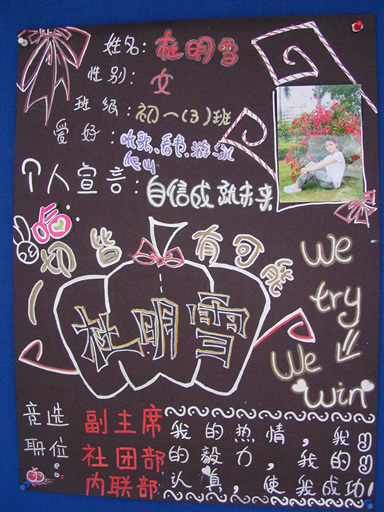 姓名: 杜明雪
性别: 女
班级: 初一(3)班
爱好: 听歌、看书、游泳、
爬山
个人宣言: 自信成就未来
一切皆有可能
We
try
We
win
杜明雪
竞选
职位:
副主席
社团部
内联部
我的热情, 我
的毅力, 我的
认真, 使我成功!